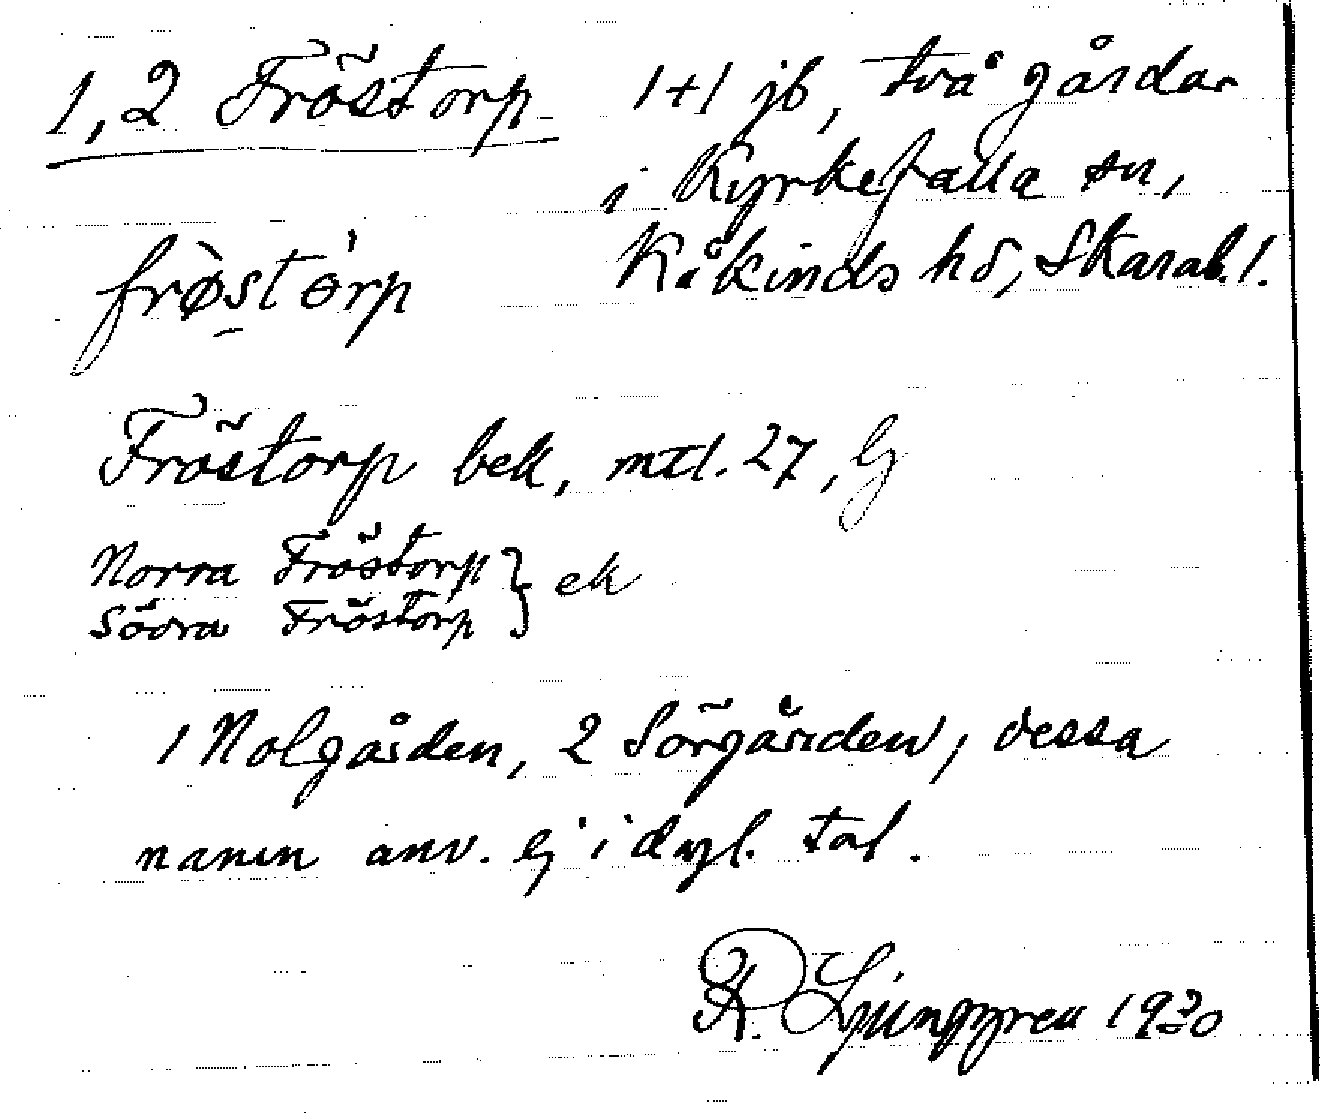 1,2 Fröstorp 1+1 jb, två gårdar
i Kyrkefalla sn,
frø̀stórp Kåkinds hd, Skarab. l.
Fröstorp bek, mtl. 27, Gj
Norra Fröstorp } ek
Södra Fröstorp
1 Nolgården, 2 Sörgården, dessa
namn anv. ej i dagl. tal.
R. Ljunggren 1930